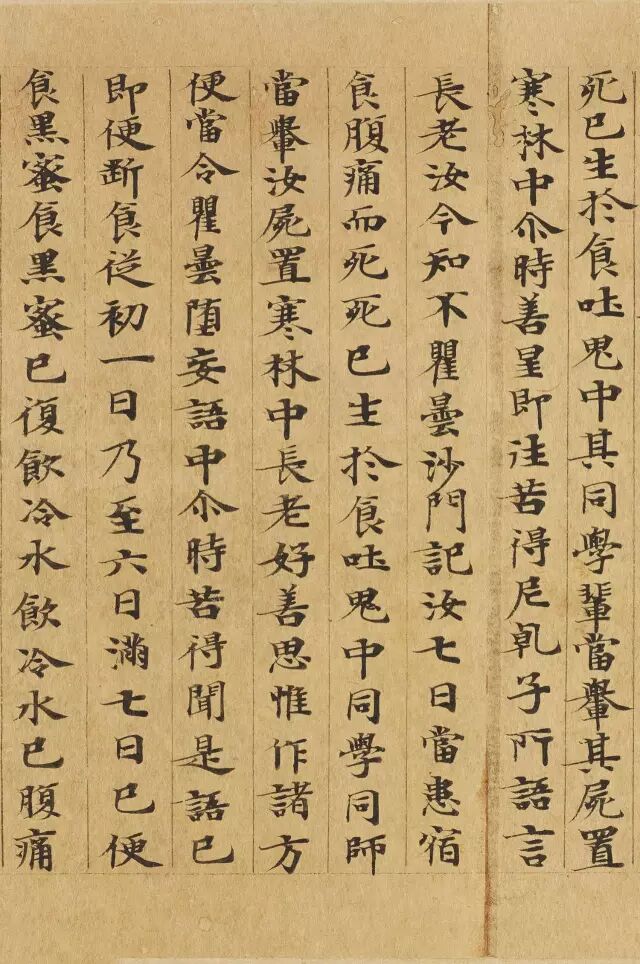 死已生於食吐鬼中其同學輩當轝其屍置
寒林中尒時善星即往苦得尼乹子所語言
長老汝今知不瞿曇沙門記汝七日當患宿
食腹痛而死死已生於食吐鬼中同學同師
當轝汝屍置寒林中長老好善思惟作諸方
便當令瞿曇墮妄語中尒時苦得聞是語已
即便斷食從初一日乃至六日滿七日已便
食黑蜜食黑蜜已復飲冷水飲冷水已腹痛